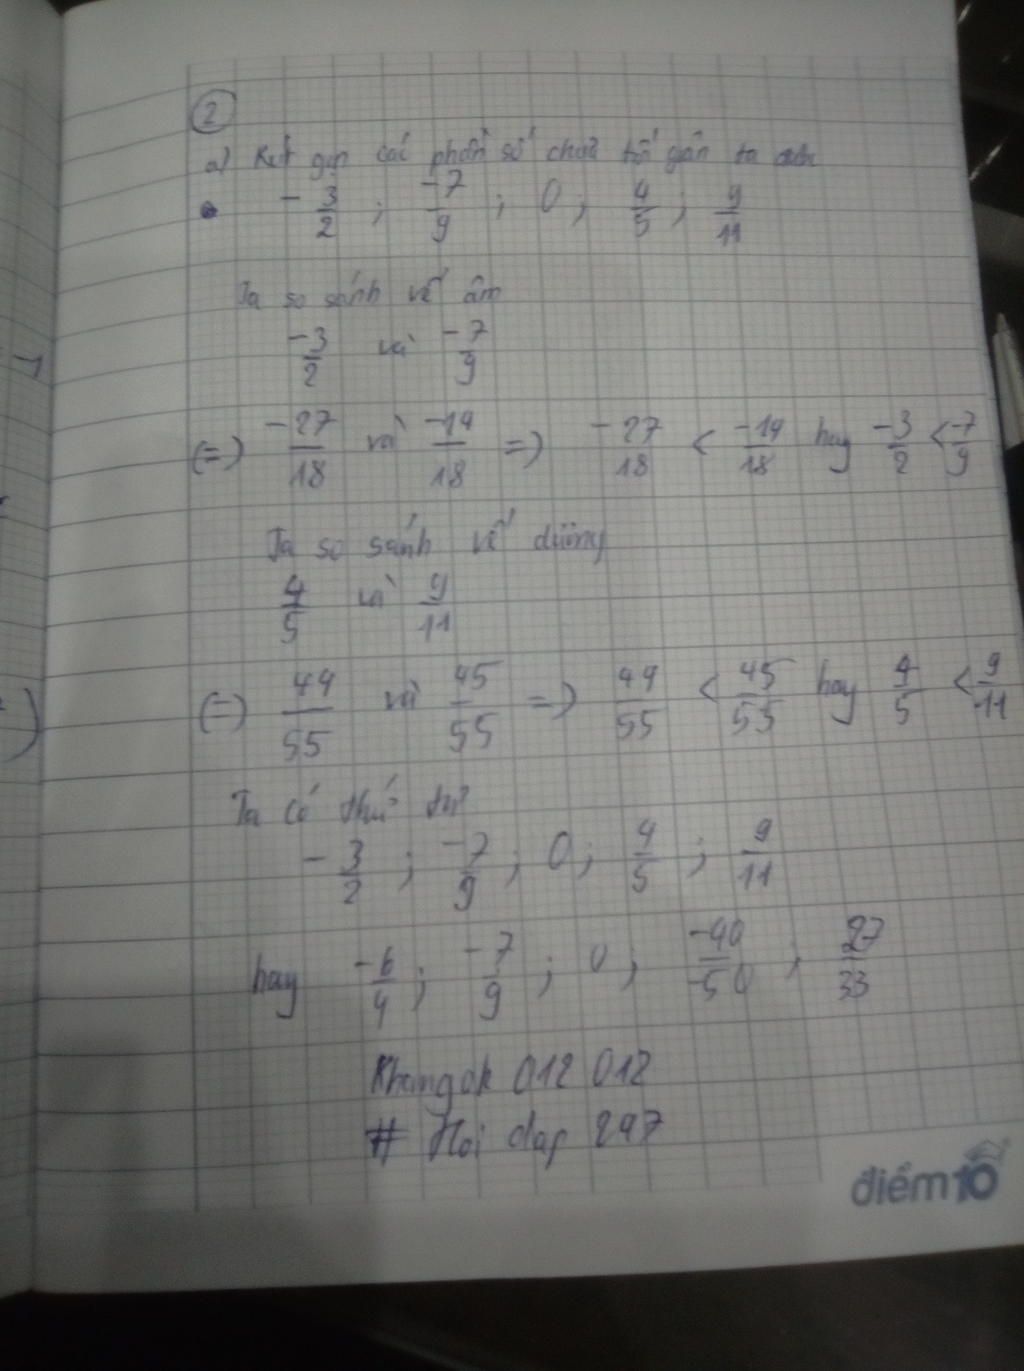 2
a) Rút gọn các phân số chưa tối giản ta
-3/2 ; -7/9 ; 0 ; 4/5 ; 9/11
Ta so sánh vế âm
-3/2 và -7/9
(=) -27/18 và -14/18 =) -27/18 < -14/18 hay -3/2 < -7/9
Ta so sánh vế dương
4/5 và 9/11
(=) 44/55 và 45/55 =) 44/55 < 45/55 hay 4/5 < 9/11
Ta có thứ tự
-3/2 ; -7/9 ; 0 ; 4/5 ; 9/11
hay -6/4 ; -7/9 ; 0 ; -40/-50 ; 27/33
Khangok 012 012
# Hoi dap 247
điểm10